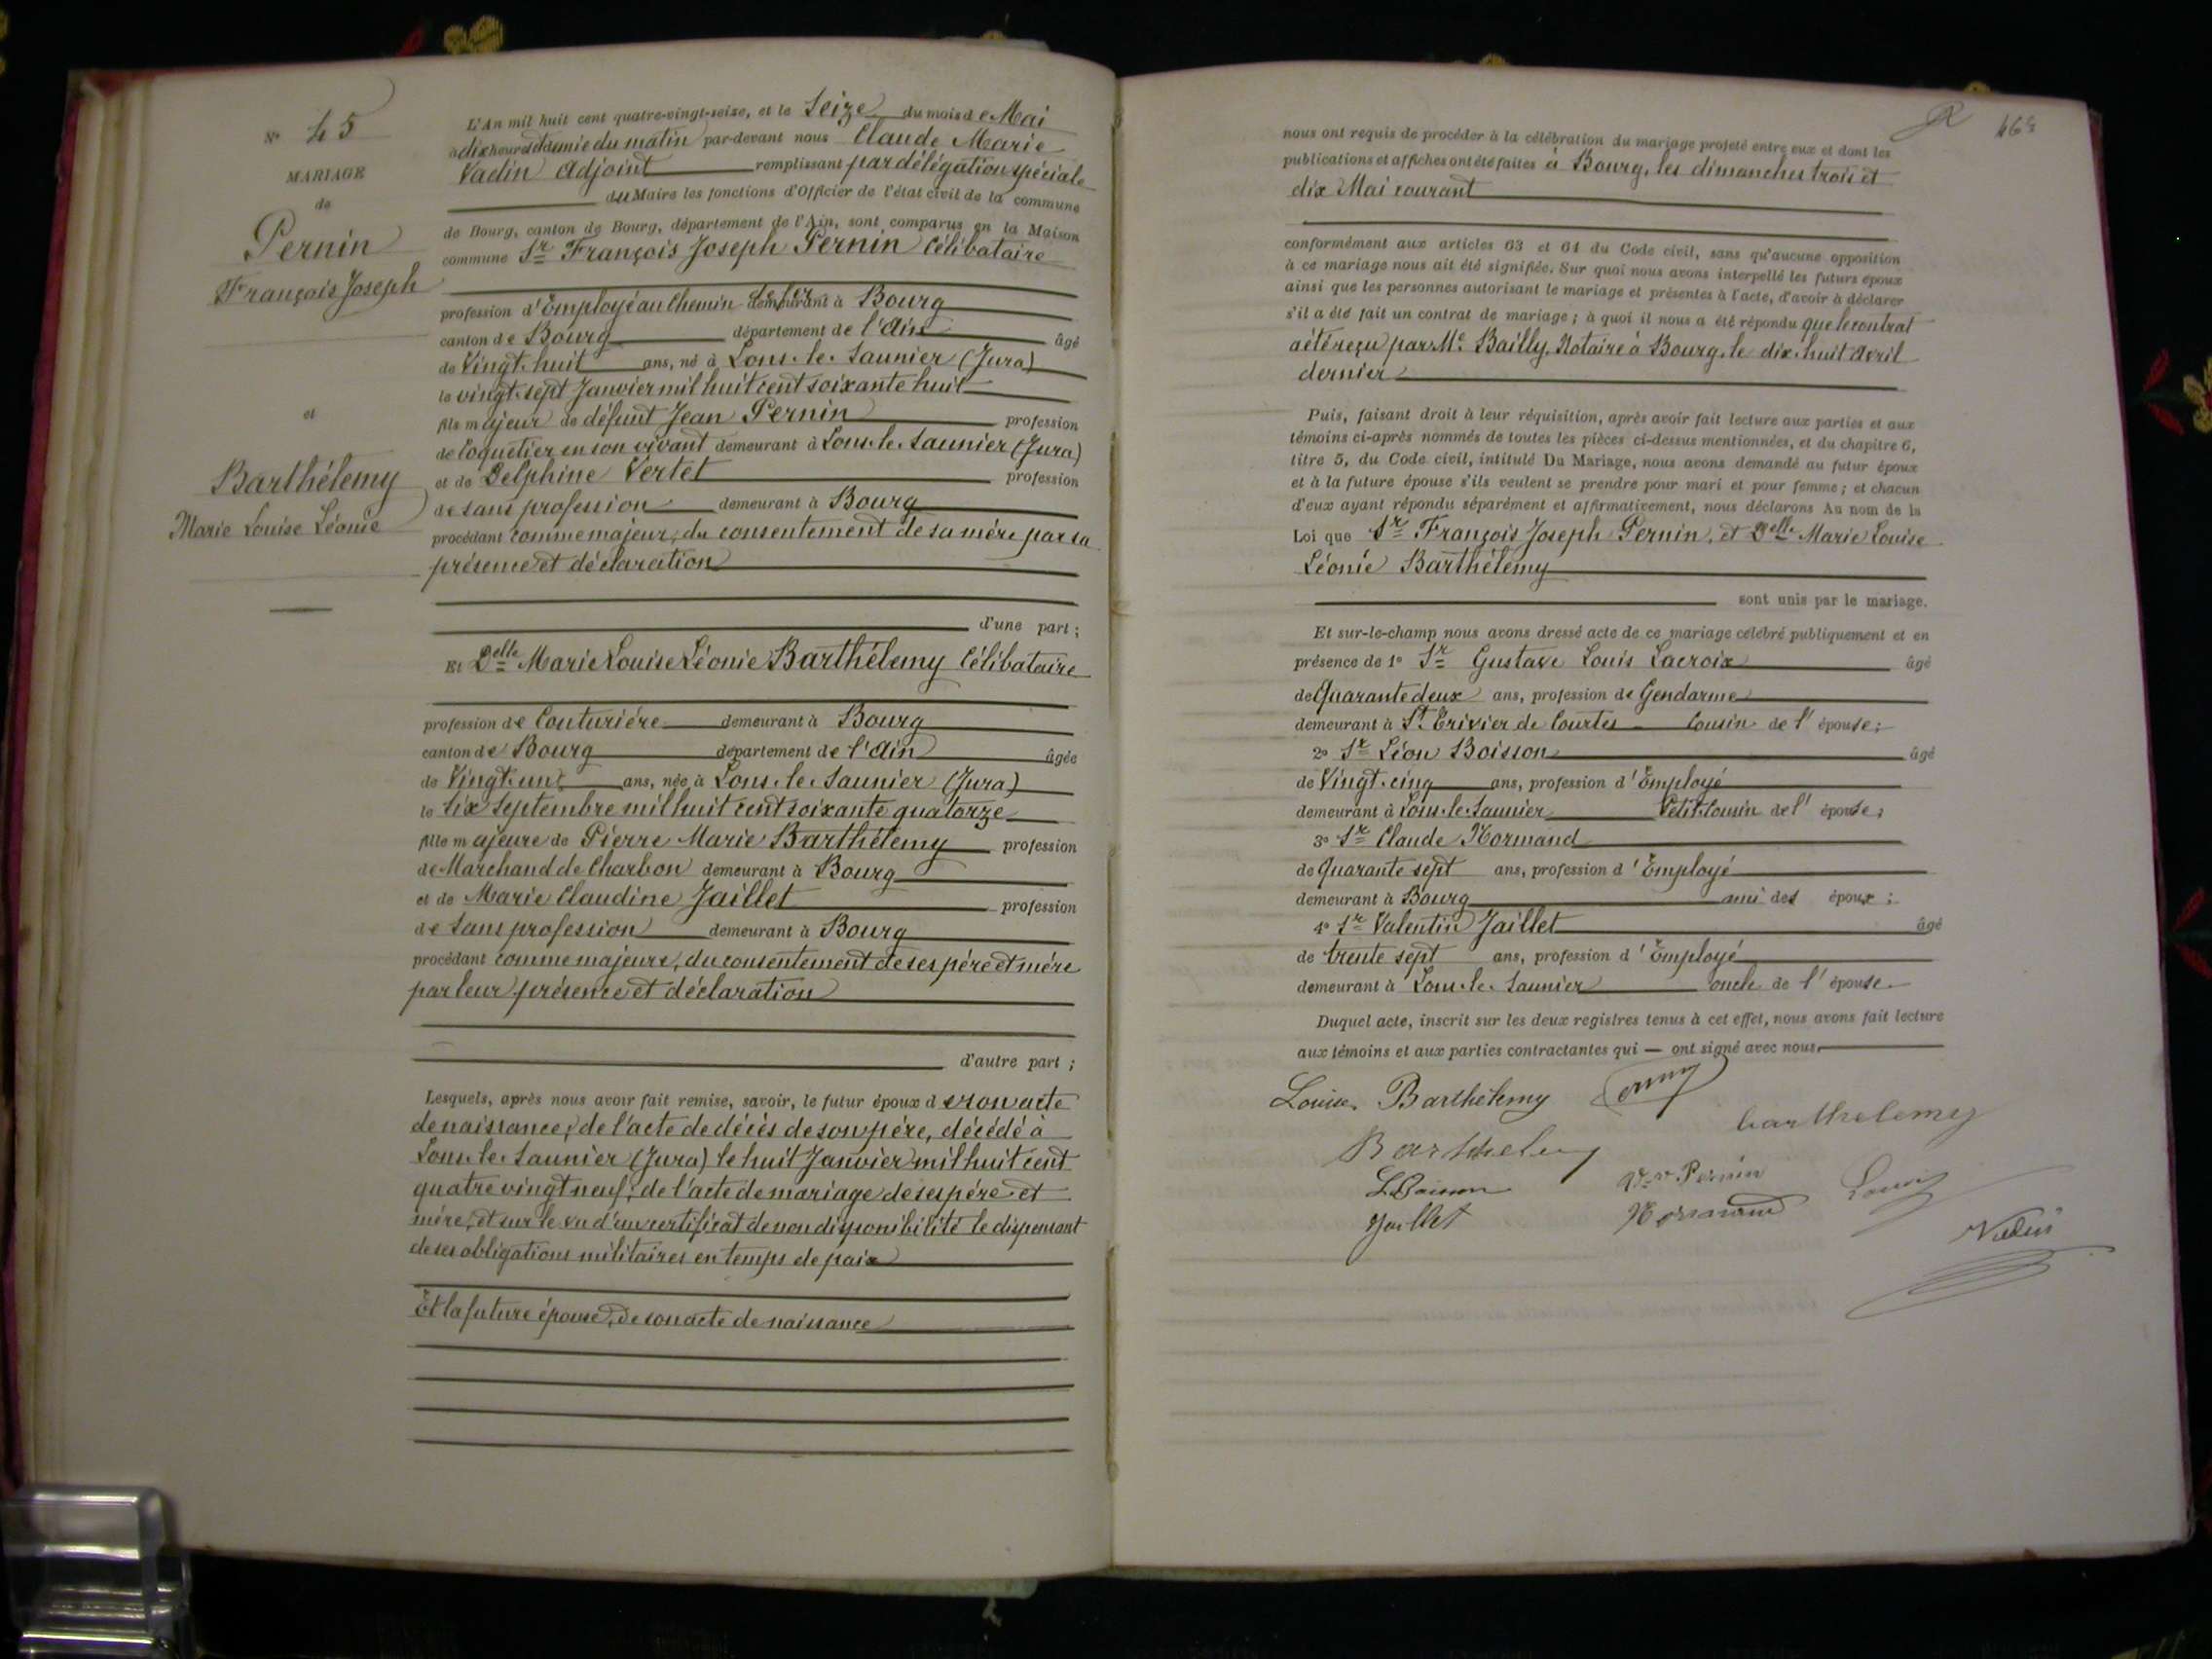 N° 45
MARIAGE
de
Pernin
François Joseph
et
Barthélemy
Marie Louise Léonie
L'An mil huit cent quatre-vingt-seize, et le Seize du mois de Mai
à dix heures et demie du matin par-devant nous Claude Marie
Vadin Adjoint remplissant par délégation spéciale
du Maire les fonctions d'Officier de l'état civil de la commune
de Bourg, canton de Bourg, département de l'Ain, sont comparus en la Maison
commune Sr François Joseph Pernin Célibataire
profession d'Employé au Chemin de fer demeurant à Bourg
canton de Bourg département de l'Ain âgé
de Vingt-huit ans, né à Lons-le-Saunier (Jura)
le vingt-sept Janvier mil huit cent soixante huit
fils majeur de défunt Jean Pernin profession
de Coquetier en son vivant demeurant à Lons-le-Saunier (Jura)
et de Delphine Vertet profession
de sans profession demeurant à Bourg
procédant comme majeur, du consentement de sa mère par sa
présence et déclaration
d'une part ;
Et Delle Marie Louise Léonie Barthélemy Célibataire
profession de Couturière demeurant à Bourg
canton de Bourg département de l'Ain âgée
de Vingt-un ans, née à Lons-le-Saunier (Jura)
le Six Septembre mil huit cent soixante quatorze
fille majeure de Pierre Marie Barthélemy profession
de Marchand de Charbon demeurant à Bourg
et de Marie Claudine Jaillet profession
de Sans profession demeurant à Bourg
procédant comme majeure, du consentement de ses père et mère
par leur présence et déclaration
d'autre part ;
Lesquels, après nous avoir fait remise, savoir, le futur époux de son acte
de naissance; de l'acte de décès de son père, décédé à
Lons-le-Saunier (Jura) le huit Janvier mil huit cent
quatre vingt neuf; de l'acte de mariage de ses père et
mère, et sur le vu d'un certificat de non disponibilité le dispensant
de ses obligations militaires en temps de paix
Et la future épouse, de son acte de naissance
nous ont requis de procéder à la célébration du mariage projeté entre eux et dont les
publications et affiches ont été faites à Bourg, les dimanches trois et
dix Mai courant
conformément aux articles 63 et 64 du Code civil, sans qu'aucune opposition
à ce mariage nous ait été signifiée. Sur quoi nous avons interpellé les futurs époux
ainsi que les personnes autorisant le mariage et présentes à l'acte, d'avoir à déclarer
s'il a été fait un contrat de mariage ; à quoi il nous a été répondu que le contrat
a été reçu par Me Bailly, Notaire à Bourg, le dix-huit Avril
dernier
Puis, faisant droit à leur réquisition, après avoir fait lecture aux parties et aux
témoins ci-après nommés de toutes les pièces ci-dessus mentionnées, et du chapitre 6,
titre 5, du Code civil, intitulé Du Mariage, nous avons demandé au futur époux
et à la future épouse s'ils veulent se prendre pour mari et pour femme ; et chacun
d'eux ayant répondu séparément et affirmativement, nous déclarons Au nom de la
Loi que Sr François Joseph Pernin, et Delle Marie Louise
Léonie Barthélemy
sont unis par le mariage.
Et sur-le-champ nous avons dressé acte de ce mariage célébré publiquement et en
présence de 1° Sr Gustave Louis Lacroix âgé
de Quarante deux ans, profession de Gendarme
demeurant à St Trivier de Courtes Cousin de l'épouse ;
2° Sr Léon Boisson âgé
de Vingt-cinq ans, profession d'Employé
demeurant à Lons-le-Saunier Petit-Cousin de l'épouse ;
3° Sr Claude Normand
de Quarante sept ans, profession d'Employé
demeurant à Bourg ami des époux ;
4° Sr Valentin Jaillet âgé
de trente sept ans, profession d'Employé
demeurant à Lons-le-Saunier oncle de l'épouse
Duquel acte, inscrit sur les deux registres tenus à cet effet, nous avons fait lecture
aux témoins et aux parties contractantes qui — ont signé avec nous.
Louise Barthélemy
barthelemy
Barthelemy
L Boisson Vve Pernin
Jaillet Normand
Vadin